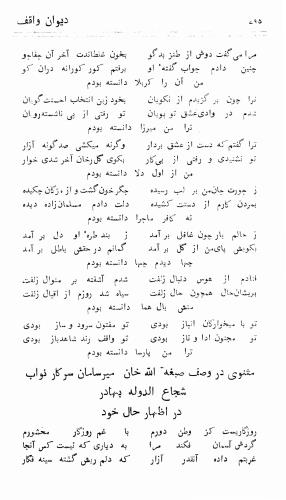 دیوان واقف
۴۹۵
مرا می‌گفت دوش از طنز بدگو بخون غلطاندت آخر آن جفاجو
چنین دادم جواب گفتهٔ او برفتم کور کورانه دران کو
من آن را کربلا دانسته بودم
ترا چون برگزیدم از نکویان بخود زین انتخاب احسنت گویان
شدم در وادی عشق تو پویان تو رفتی از بی ناشسته رویان
ترا من میرزا دانسته بودم
ترا گفتم که دست از عشق بردار وگرنه میکشی صد گونه آزار
تو نشنیدی و رفتی از پی کار بکوی گلرخان آخر شدی خوار
من از اول دلا دانسته بودم
ز جورت جان من بر لب رسیده جگر خون گشت و از مژگان چکیده
بمردن کارم از دستت کشیده دلت دادم مسلمان زاده دیده
نه کافر ماجرا دانسته بودم
ز حالم یار چون غافل بر آمد ز بند طرهٔ او دل بر آمد
بکویش پای من از گل بر آمد گمانم در حقش باطل بر آمد
چها دیدم چها دانسته بودم
فتادم از هوس دنبال زلفت شدم آشفته بر منوال زلفت
پریشان حال همچون حال زلفت سیاه شد روزم از اقبال زلفت
منش بال هما دانسته بودم
تو با میخوارگان انباز بودی تو مفتون سرود و ساز بودی
تو مجنون ادا و ناز بودی تو واقف رند شاهدباز بودی
ترا من پارسا دانسته بودم
مثنوی در وصف صبغة الله خان میرسامان سرکار نواب
شجاع الدوله بهادر
در اظهار حال خود
روزگاریست کز وطن دورم با غم روزگار محشورم
گردش آسمان فکند مرا به دیاری که نیست کس آنجا
غربتم داده آنقدر آزار که دلم ریش گشته سینه فگار